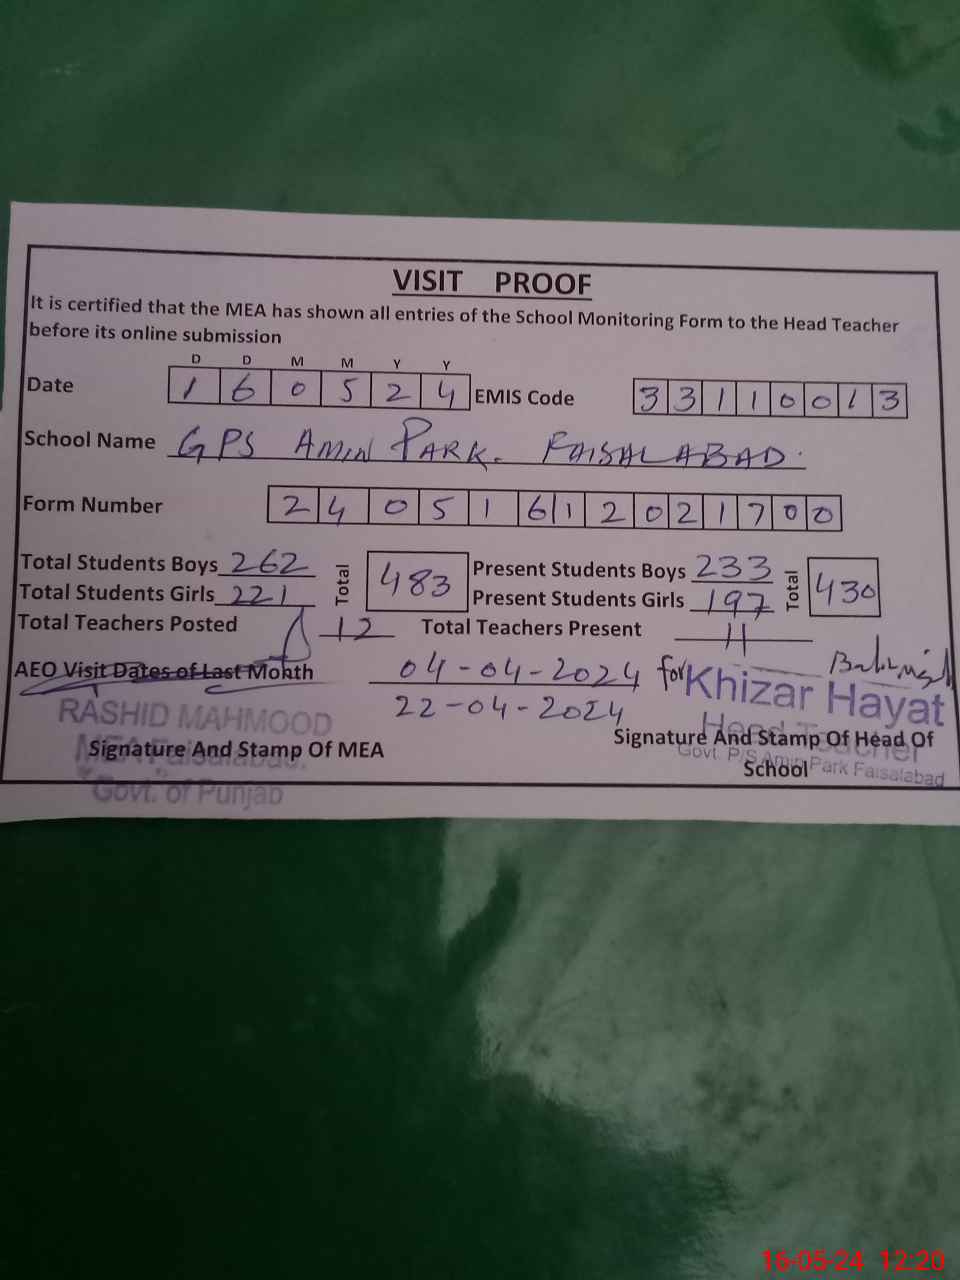 VISIT PROOF
It is certified that the MEA has shown all entries of the School Monitoring Form to the Head Teacher
before its online submission
D D M M Y Y
Date 1 6 0 5 2 4 EMIS Code 3 3 1 1 0 0 1 3
School Name GPS AMIN PARK. FAISALABAD.
Form Number 2 4 0 5 1 6 1 2 0 2 1 7 0 0
Total Students Boys 262 Total 483 Present Students Boys 233 Total 430
Total Students Girls 221 Present Students Girls 197
Total Teachers Posted 12 Total Teachers Present 11
AEO Visit Dates of Last Month 04-04-2024 for Khizar Hayat
22-04-2024
RASHID MAHMOOD Head Teacher
MEA Faisalabad. Govt. P/S Amin Park Faisalabad
Govt. of Punjab
Signature And Stamp Of MEA Signature And Stamp Of Head Of
School
16-05-24 12:20